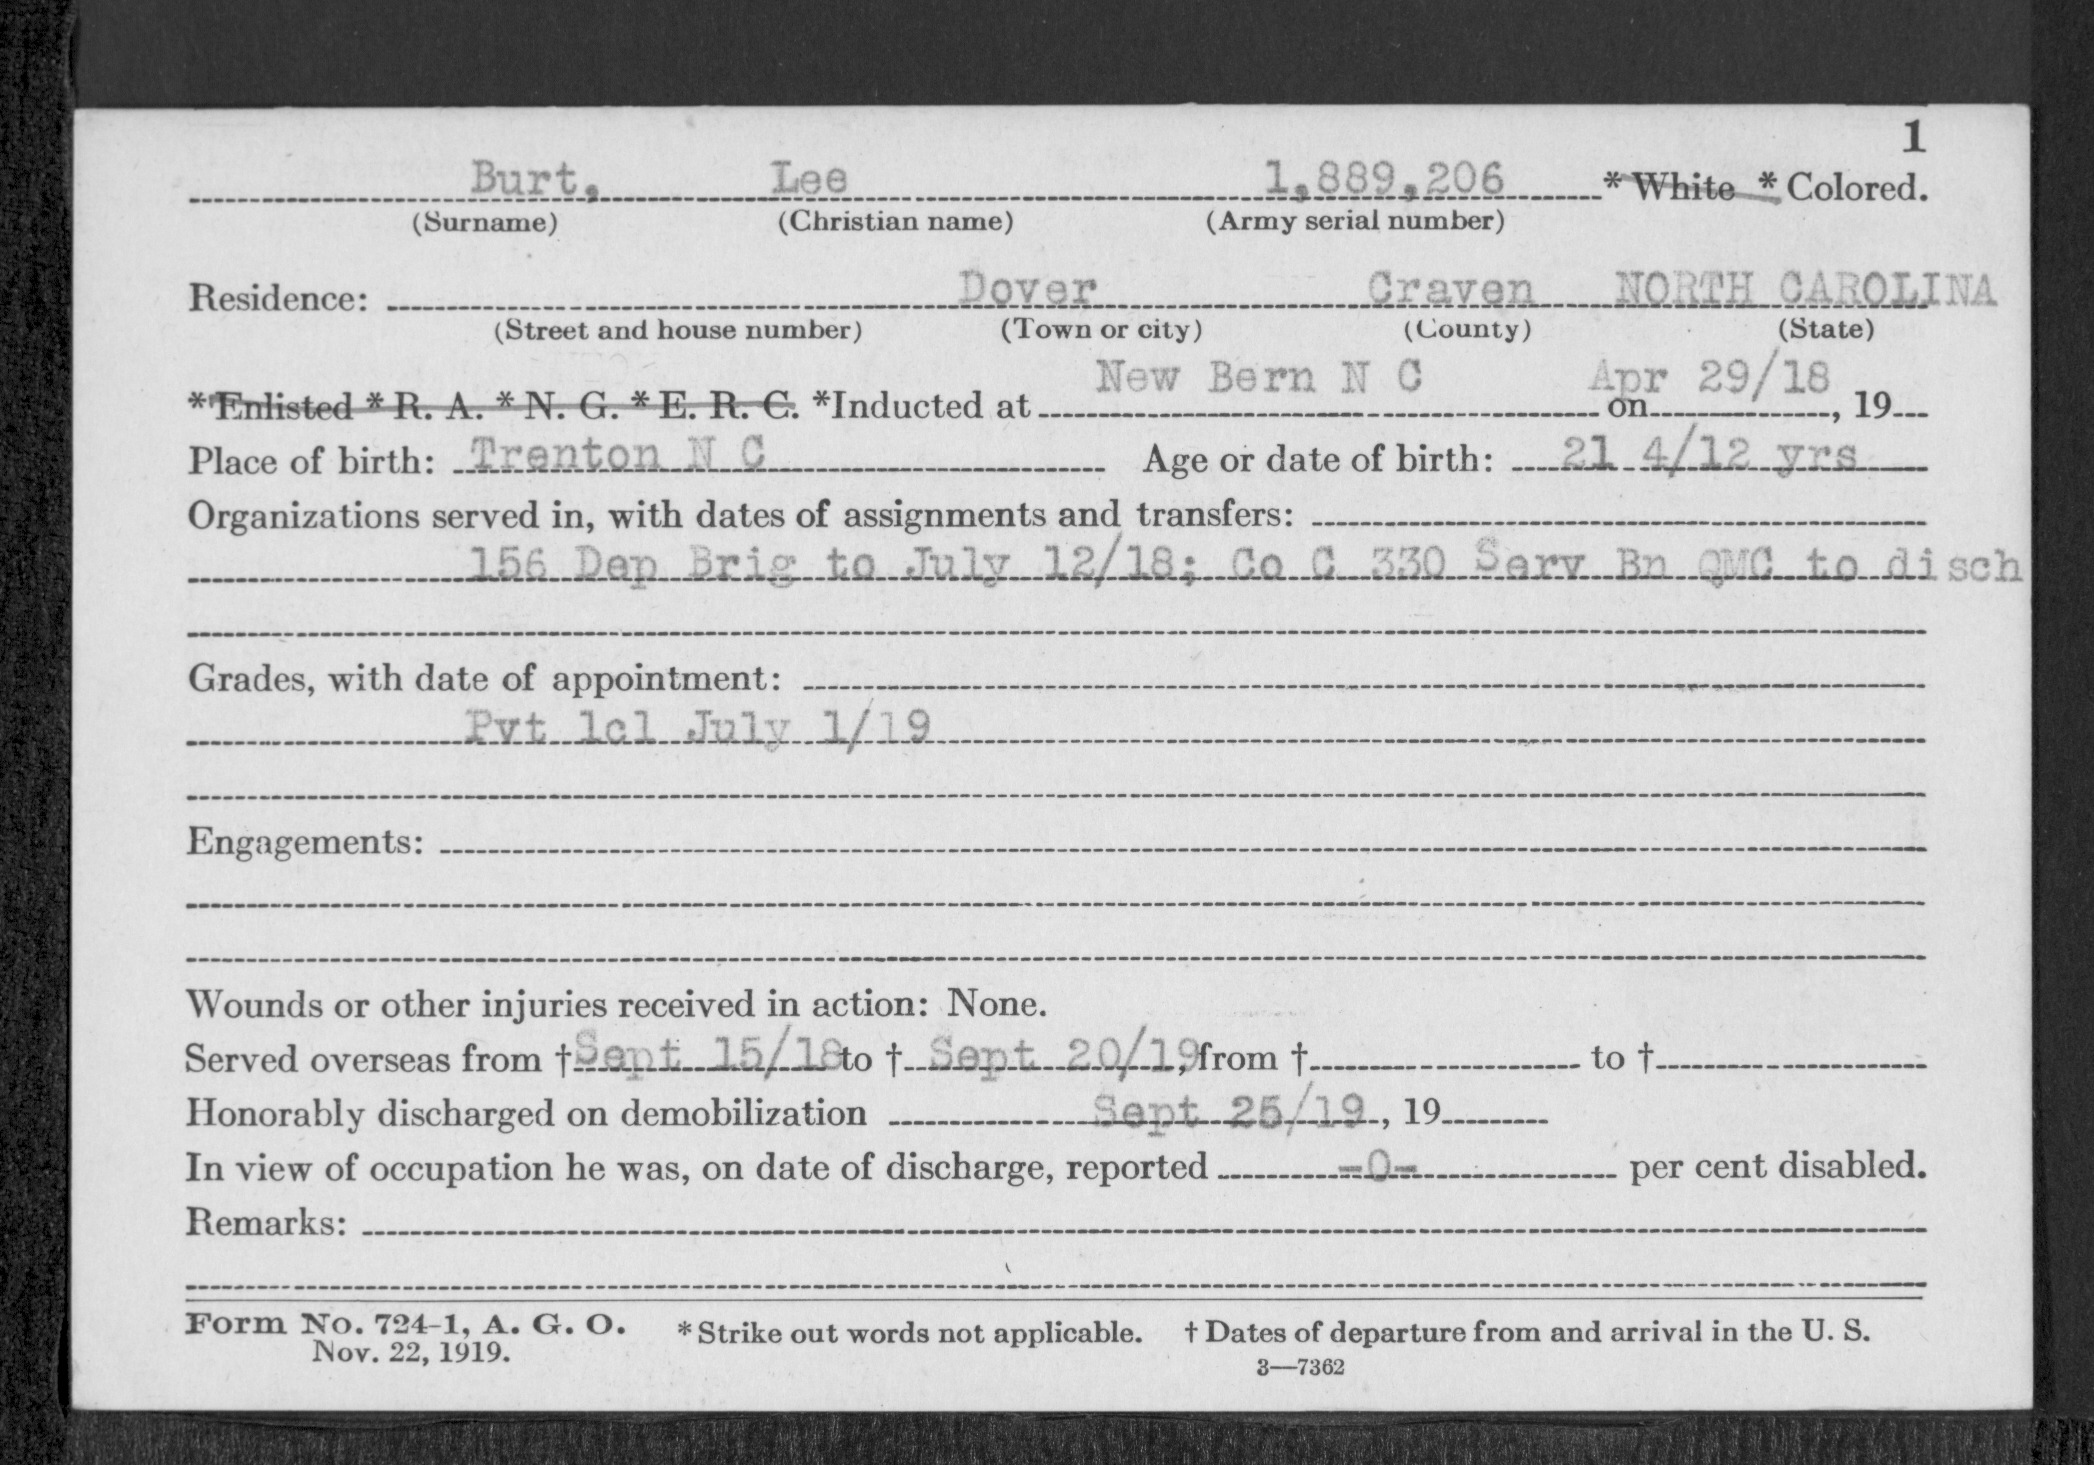 1
Burt, Lee 1,889,206 * White * Colored.
(Surname) (Christian name) (Army serial number)
Residence: Dover Craven NORTH CAROLINA
(Street and house number) (Town or city) (County) (State)
New Bern N C Apr 29/18
* Enlisted * R. A. * N. G. * E. R. C. * Inducted at on , 19
Place of birth: Trenton N C Age or date of birth: 21 4/12 yrs
Organizations served in, with dates of assignments and transfers:
156 Dep Brig to July 12/18; Co C 330 Serv Bn QMC to disch
Grades, with date of appointment:
Pvt 1cl July 1/19
Engagements:
Wounds or other injuries received in action: None.
Served overseas from † Sept 15/18 to † Sept 20/19, from † to †
Honorably discharged on demobilization Sept 25/19, 19
In view of occupation he was, on date of discharge, reported -0- per cent disabled.
Remarks:
Form No. 724-1, A. G. O. * Strike out words not applicable. † Dates of departure from and arrival in the U. S.
Nov. 22, 1919. 3—7362